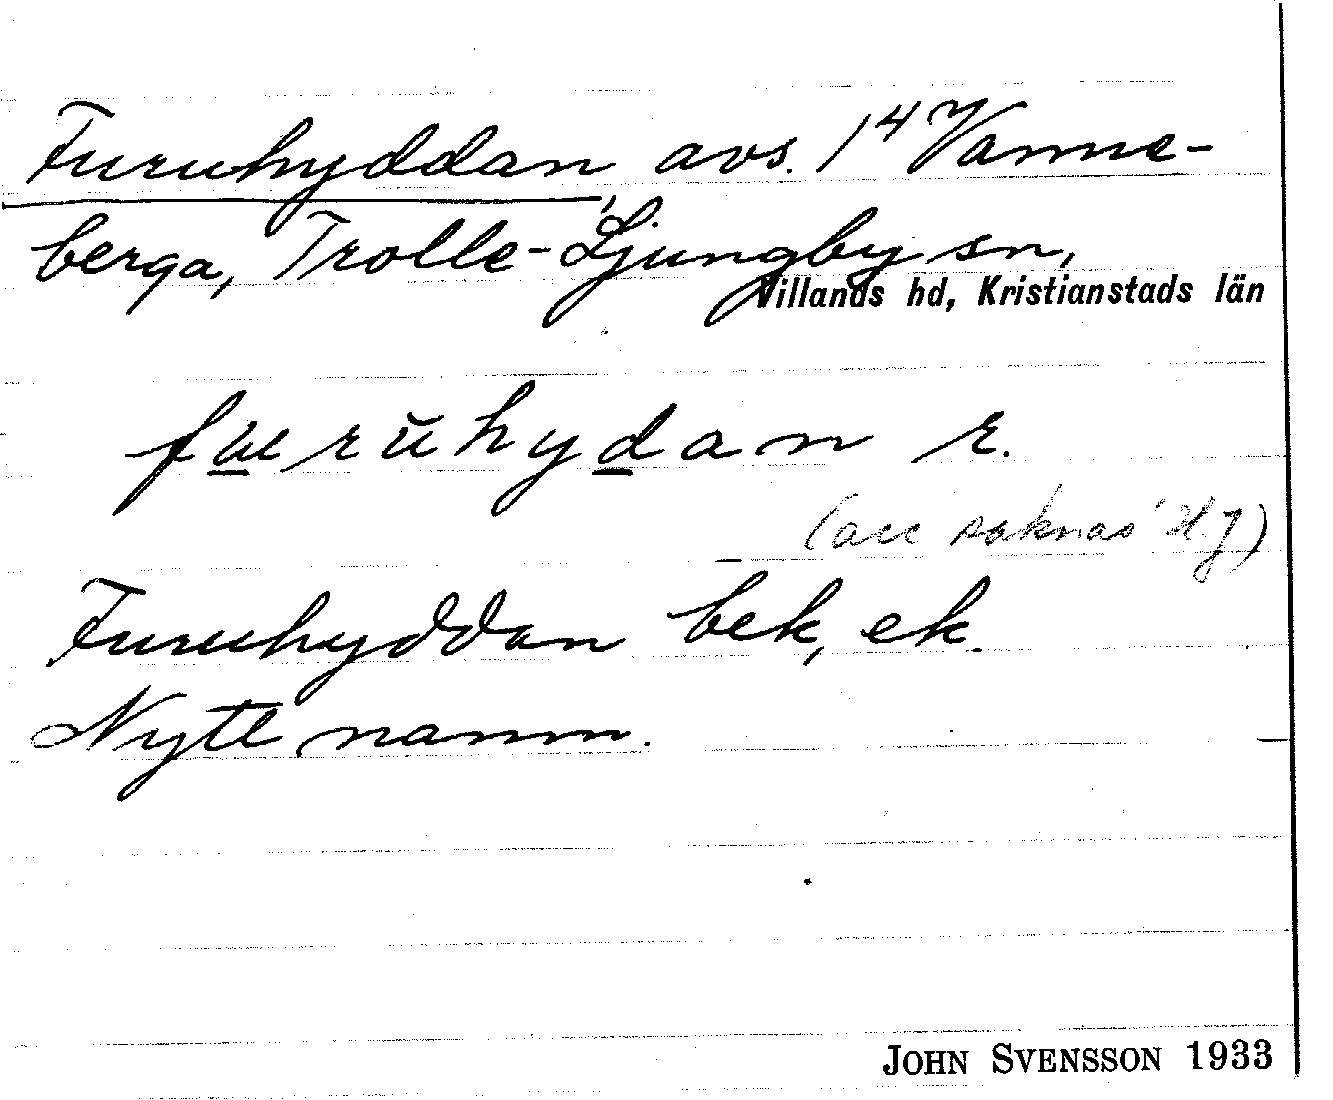 Furuhyddan, avs. 1⁴ Vanne-
berga, Trolle-Ljungby sn,
Villands hd, Kristianstads län
fuerŭhydan r.
(acc saknas HJ)
Furuhyddan bek, ek.
Nytt namn.
JOHN SVENSSON 1933